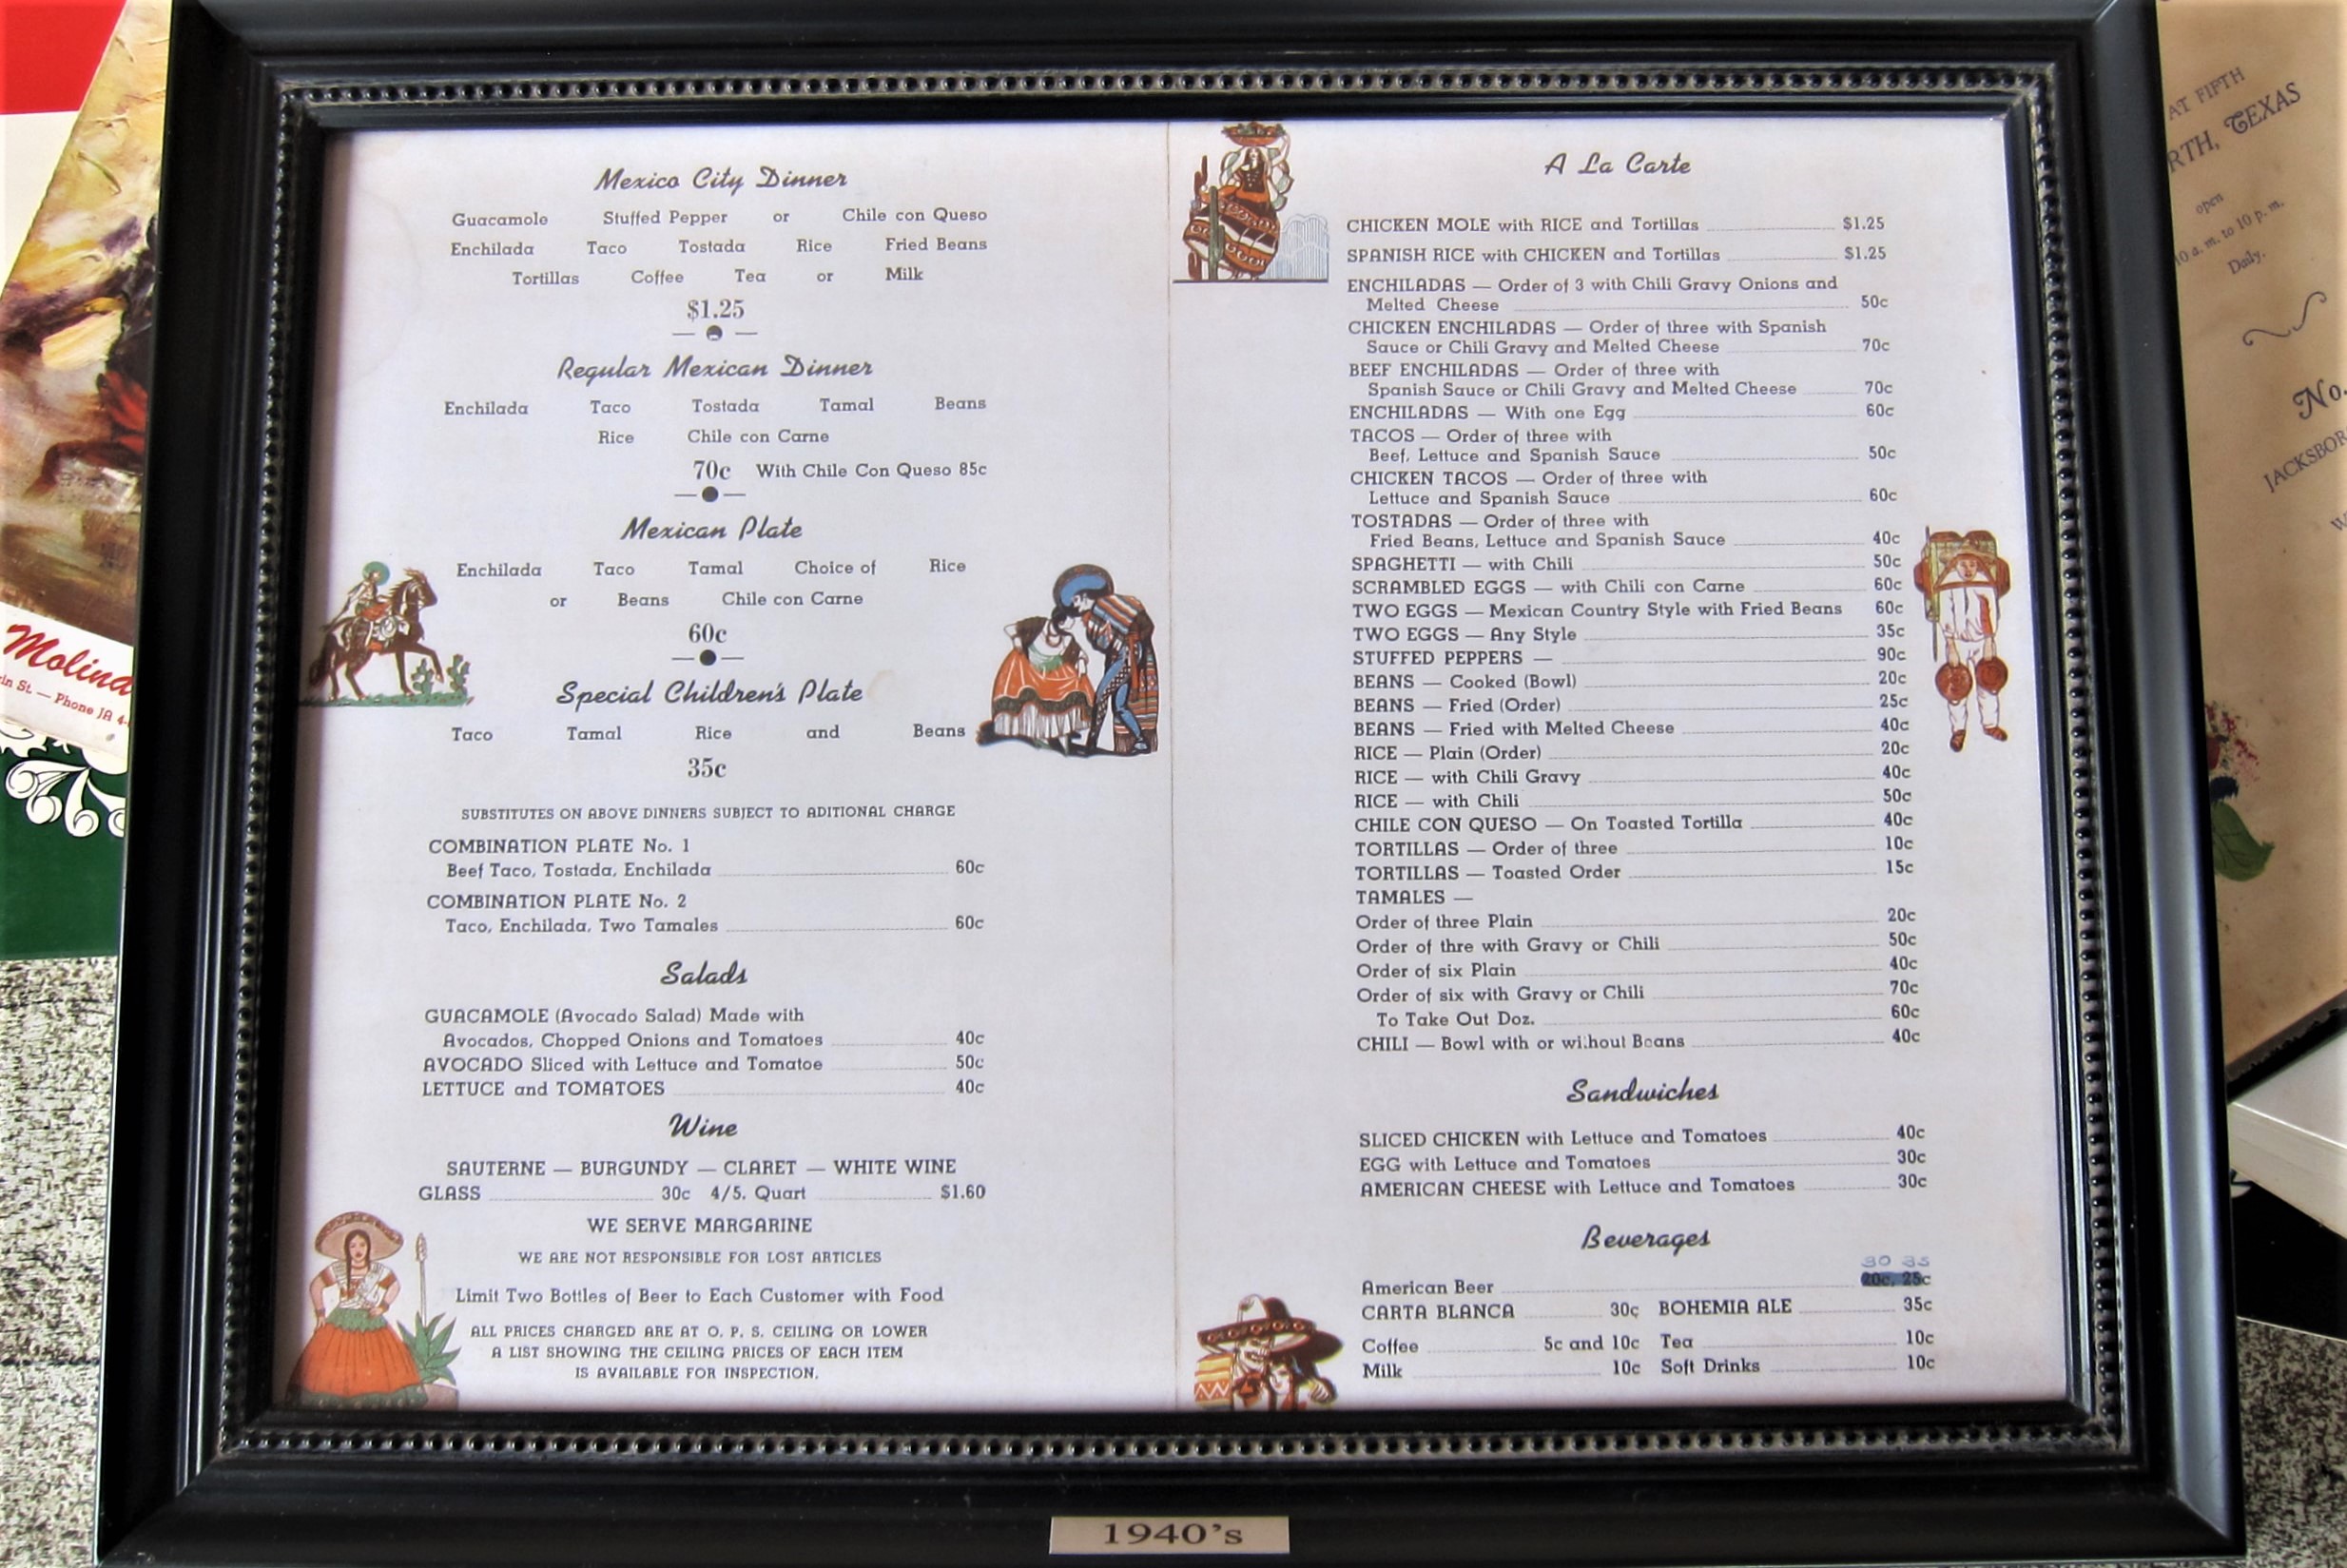 Mexico City Dinner
Guacamole Stuffed Pepper or Chile con Queso
Enchilada Taco Tostada Rice Fried Beans
Tortillas Coffee Tea or Milk
$1.25
Regular Mexican Dinner
Enchilada Taco Tostada Tamal Beans
Rice Chile con Carne
70c With Chile Con Queso 85c
Mexican Plate
Enchilada Taco Tamal Choice of Rice
or Beans Chile con Carne
60c
Special Children's Plate
Taco Tamal Rice and Beans
35c
SUBSTITUTES ON ABOVE DINNERS SUBJECT TO ADITIONAL CHARGE
COMBINATION PLATE No. 1
Beef Taco, Tostada, Enchilada 60c
COMBINATION PLATE No. 2
Taco, Enchilada, Two Tamales 60c
Salads
GUACAMOLE (Avocado Salad) Made with
Avocados, Chopped Onions and Tomatoes 40c
AVOCADO Sliced with Lettuce and Tomatoe 50c
LETTUCE and TOMATOES 40c
Wine
SAUTERNE — BURGUNDY — CLARET — WHITE WINE
GLASS 30c 4/5. Quart $1.60
WE SERVE MARGARINE
WE ARE NOT RESPONSIBLE FOR LOST ARTICLES
Limit Two Bottles of Beer to Each Customer with Food
ALL PRICES CHARGED ARE AT O. P. S. CEILING OR LOWER
A LIST SHOWING THE CEILING PRICES OF EACH ITEM
IS AVAILABLE FOR INSPECTION.
A La Carte
CHICKEN MOLE with RICE and Tortillas $1.25
SPANISH RICE with CHICKEN and Tortillas $1.25
ENCHILADAS — Order of 3 with Chili Gravy Onions and
Melted Cheese 50c
CHICKEN ENCHILADAS — Order of three with Spanish
Sauce or Chili Gravy and Melted Cheese 70c
BEEF ENCHILADAS — Order of three with
Spanish Sauce or Chili Gravy and Melted Cheese 70c
ENCHILADAS — With one Egg 60c
TACOS — Order of three with
Beef, Lettuce and Spanish Sauce 50c
CHICKEN TACOS — Order of three with
Lettuce and Spanish Sauce 60c
TOSTADAS — Order of three with
Fried Beans, Lettuce and Spanish Sauce 40c
SPAGHETTI — with Chili 50c
SCRAMBLED EGGS — with Chili con Carne 60c
TWO EGGS — Mexican Country Style with Fried Beans 60c
TWO EGGS — Any Style 35c
STUFFED PEPPERS — 90c
BEANS — Cooked (Bowl) 20c
BEANS — Fried (Order) 25c
BEANS — Fried with Melted Cheese 40c
RICE — Plain (Order) 20c
RICE — with Chili Gravy 40c
RICE — with Chili 50c
CHILE CON QUESO — On Toasted Tortilla 40c
TORTILLAS — Order of three 10c
TORTILLAS — Toasted Order 15c
TAMALES —
Order of three Plain 20c
Order of thre with Gravy or Chili 50c
Order of six Plain 40c
Order of six with Gravy or Chili 70c
To Take Out Doz. 60c
CHILI — Bowl with or without Beans 40c
Sandwiches
SLICED CHICKEN with Lettuce and Tomatoes 40c
EGG with Lettuce and Tomatoes 30c
AMERICAN CHEESE with Lettuce and Tomatoes 30c
Beverages
30 35
American Beer 20c, 25c
CARTA BLANCA 30c BOHEMIA ALE 35c
Coffee 5c and 10c Tea 10c
Milk 10c Soft Drinks 10c
1940's
Molina
St. — Phone JA 4-
AT FIFTH
RTH, TEXAS
open
10 a. m. to 10 p. m.
Daily.
No.